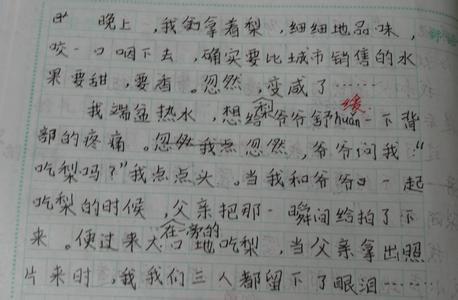 晚上，我们拿着梨，细细地品味，
咬一口咽下去，确实要比城市销售的水
果要甜，要香。忽然，变咸了……
我端盆热水，想给爷爷舒huǎn缓一下背
部的疼痛。忽然，爷爷问我："
吃梨吗？"我点点头。当我和爷爷一起
吃梨的时候，父亲把那一瞬间给拍了下
来。便过来在一旁大口地吃梨，当父亲拿出照
片来时，我们三人都留下了眼泪……